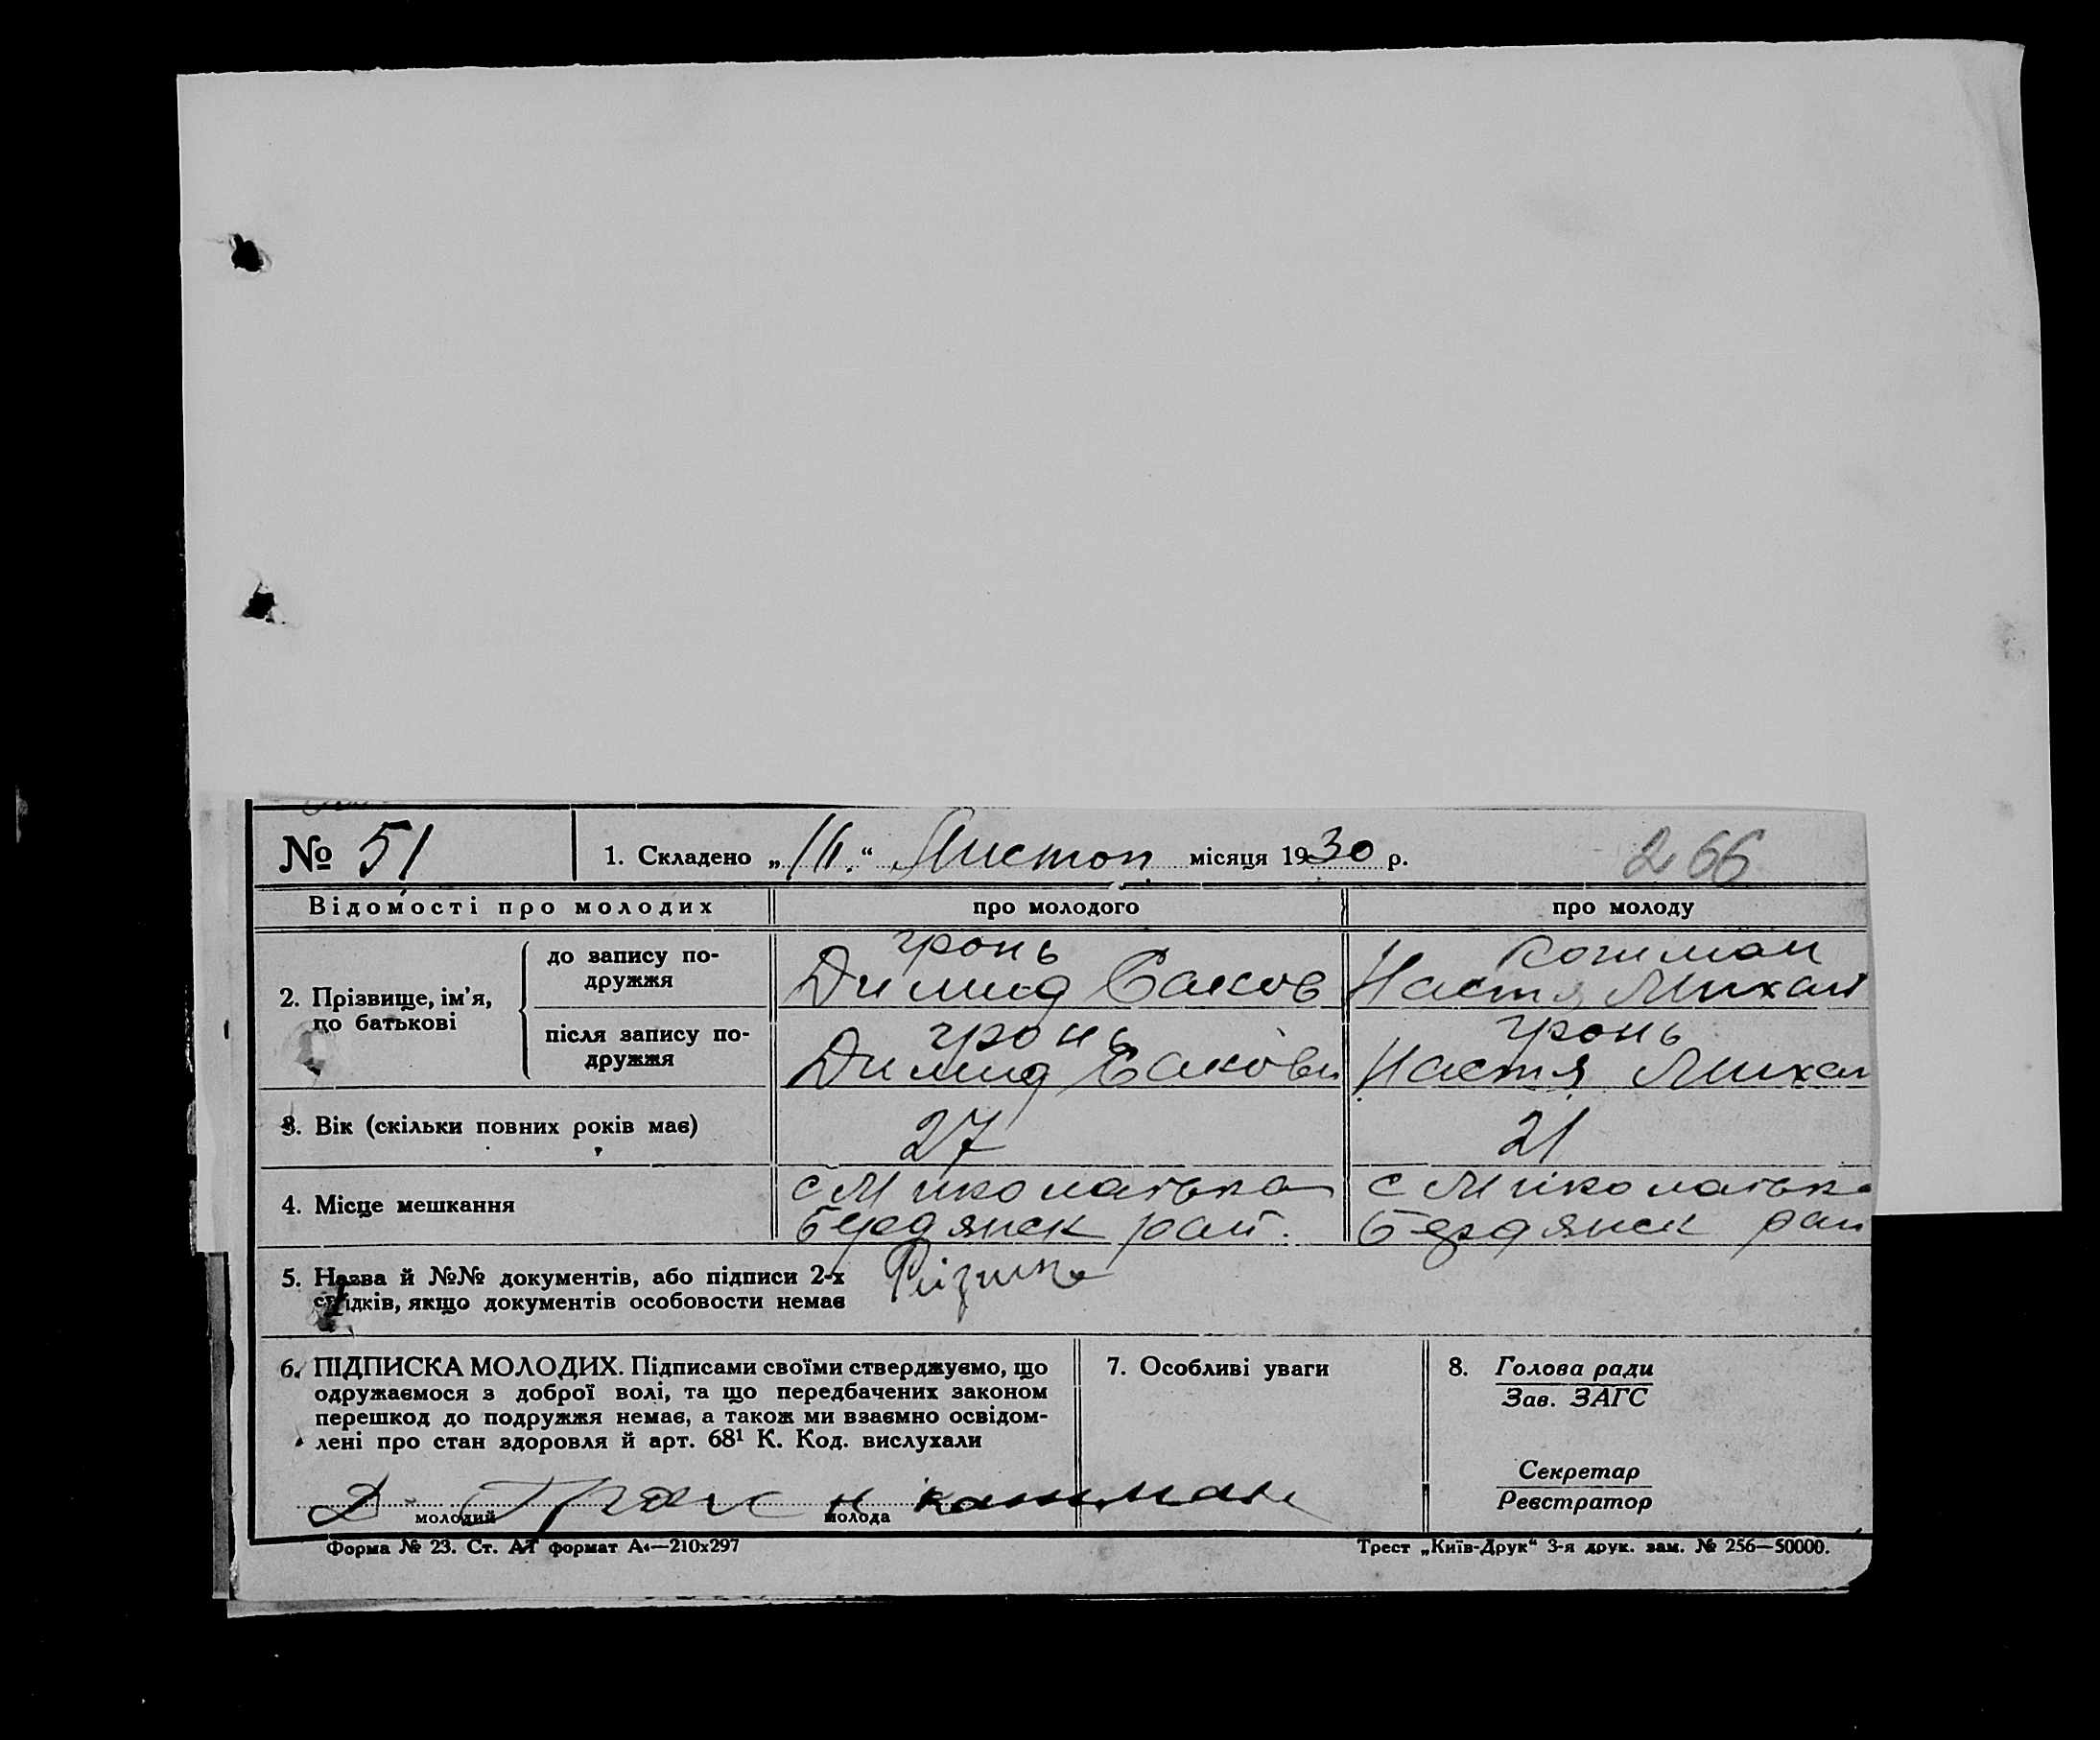 № 51 1. Складено „ 11. “ Листоп місяця 1930 р. 266
Відомості про молодих про молодого про молоду
2. Прізвище, ім’я, по батькові
до запису подружжя
гронь
Димид Саков
Кошман
Настя Михай
після запису подружжя
гронь
Димид Сакови
гронь
Настя Михай
3. Вік (скільки повних років має) 27 21
4. Місце мешкання
с Миколаївка
Бердянск рай.
с Миколаївка
Бердянск рай
5. Назва й №№ документів, або підписи 2-х
свідків, якщо документів особовости немає
6. ПІДПИСКА МОЛОДИХ. Підписами своїми стверджуємо, що
одружаємося з доброї волі, та що передбачених законом
перешкод до подружжя немає, а також ми взаємно освідом-
лені про стан здоровля й арт. 68¹ К. Код. вислухали
Д. Гронь Н Кашман
молодий молода
7. Особливі уваги
8. Голова ради
Зав. ЗАГС
Секретар
Реєстратор
Форма № 23. Ст. АТ формат А4—210x297 Трест „Київ-Друк“ 3-я друк. зам. № 256—50000.